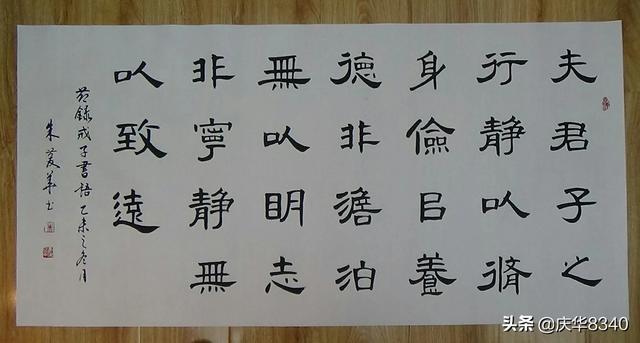 夫君子之
行静以脩
身儉㠯養
德非澹泊
無以眀志
非寧静無
以致遠
节錄戒子書語 乙未之冬月
朱
头条 @庆华8340